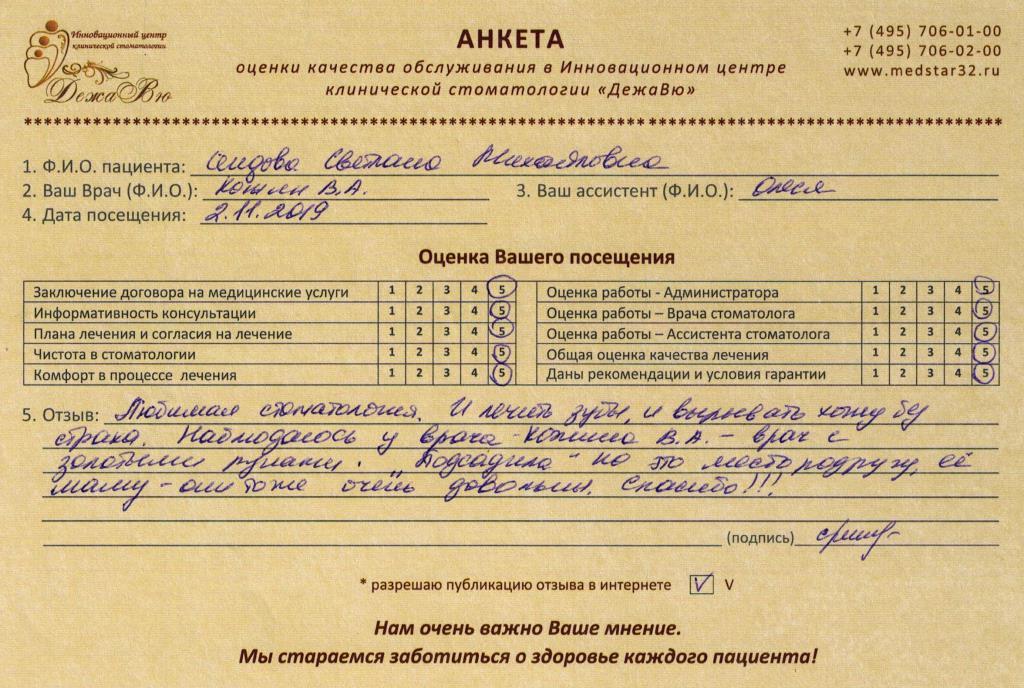 Инновационный центр
клинической стоматологии
ДежаВю
АНКЕТА
оценки качества обслуживания в Инновационном центре
клинической стоматологии «ДежаВю»
+7 (495) 706-01-00
+7 (495) 706-02-00
www.medstar32.ru
1. Ф.И.О. пациента: Светлана Михайловна
2. Ваш Врач (Ф.И.О.): В.А. 3. Ваш ассистент (Ф.И.О.): Олеся
4. Дата посещения: 2.11.2019
Оценка Вашего посещения
Заключение договора на медицинские услуги 1 2 3 4 5
Информативность консультации 1 2 3 4 5
Плана лечения и согласия на лечение 1 2 3 4 5
Чистота в стоматологии 1 2 3 4 5
Комфорт в процессе лечения 1 2 3 4 5
Оценка работы - Администратора 1 2 3 4 5
Оценка работы – Врача стоматолога 1 2 3 4 5
Оценка работы – Ассистента стоматолога 1 2 3 4 5
Общая оценка качества лечения 1 2 3 4 5
Даны рекомендации и условия гарантии 1 2 3 4 5
5. Отзыв: Любимая стоматология. И лечить зубы, и вырывать хожу без
страха. Наблюдаюсь у врача - В.А. – врач с
золотыми руками. „Подсадила" на это место подругу, её
маму – они тоже очень довольны. Спасибо!!!
(подпись)
* разрешаю публикацию отзыва в интернете V V
Нам очень важно Ваше мнение.
Мы стараемся заботиться о здоровье каждого пациента!